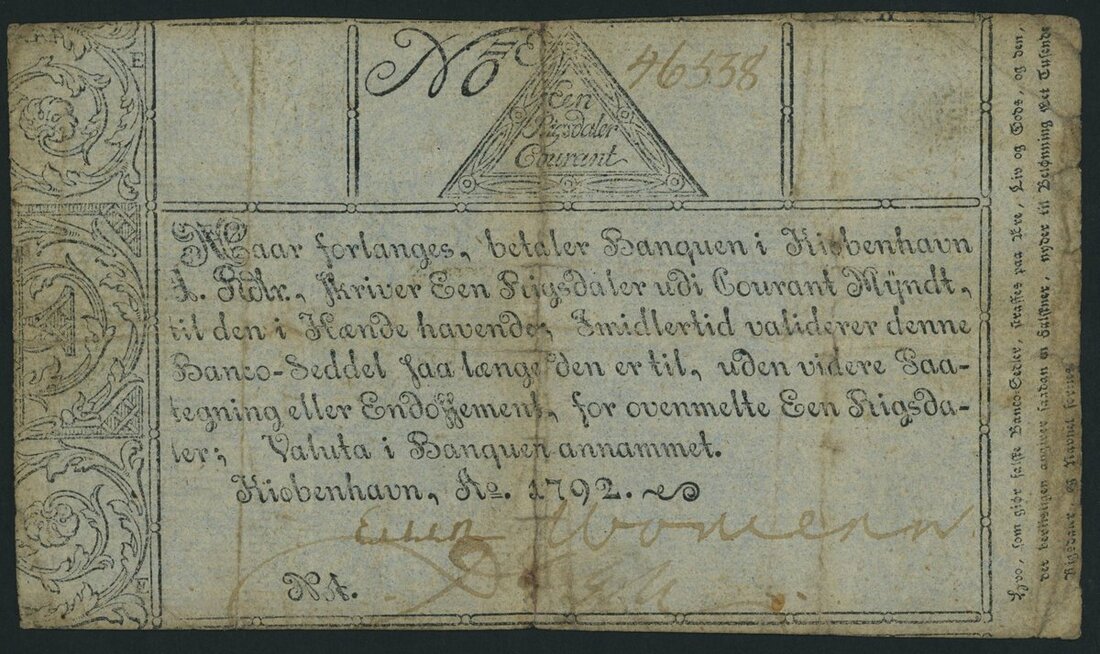 No
46538
Een
Rigsdaler
Courant
Naar forlanges, betaler Banquen i Kiøbenhavn
1. Rdlr., skriver Een Rigsdaler udi Courant Mÿndt,
til den i Hænde havende; Imidlertid validerer denne
Banco-Seddel saa længe den er til, uden videre Paa-
tegning eller Endossement, for ovenmelte Een Rigsda-
ler; Valuta i Banquen annammet.
Kiøbenhavn, Ao. 1792.
E
F
Hvo, som giør falske Banco-Sedler, straffes paa Ære, Liv og Gods, og den,
der beviisligen angiver saadan en Falskner, nyder til Belønning Eet Tusende
Rigsdaler og Navnet